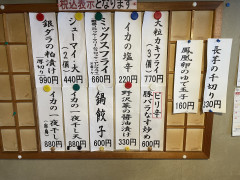 税込表示となります
長芋の千切り
330円
鳳凰卵のゆで玉子
160円
大粒カキフライ
(3個)
770円
ピリ辛
豚バラなす炒め
600円
イカの塩辛
220円
野沢菜の醤油漬け
330円
ミックスフライ
660円
鍋餃子
600円
シューマイ・大
(2個)
440円
イカの一夜干し
880円
銀ダラの粕漬け
(厚切り)
990円
イカの一夜干し
880円